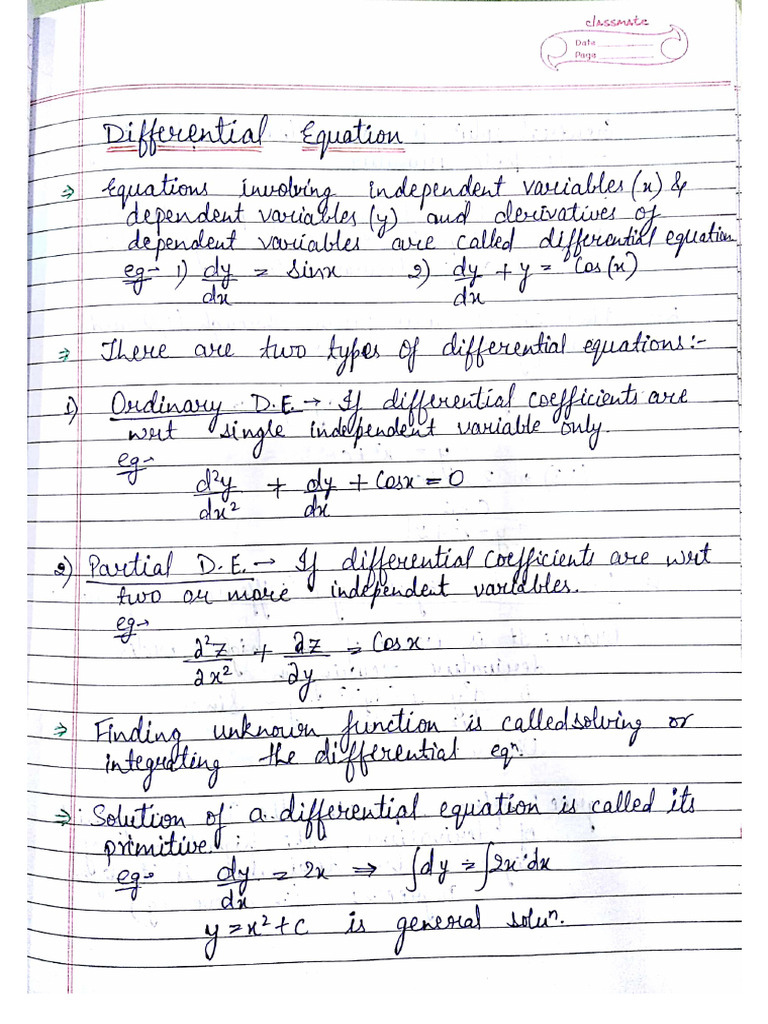 classmate
Date
Page
Differential Equation
⇒ Equations involving independent variables (x) &
dependent variables (y) and derivatives of
dependent variables are called differential equation
eg- 1) dy/dx = sinx 2) dy/dx + y = Cos(x)
⇒ There are two types of differential equations:-
1) Ordinary D.E. → If differential coefficients are
wrt single independent variable only.
eg-
d²y/dx² + dy/dx + Cosx = 0
2) Partial D.E. → If differential coefficients are wrt
two or more independent variables.
eg→
∂²z/∂x² + ∂z/∂y = Cosx
⇒ Finding unknown function is called solving or
integrating the differential eqⁿ.
⇒ Solution of a differential equation is called its
primitive.
eg- dy/dx = 2x ⇒ ∫dy = ∫2x·dx
y = x² + c is general soluⁿ.